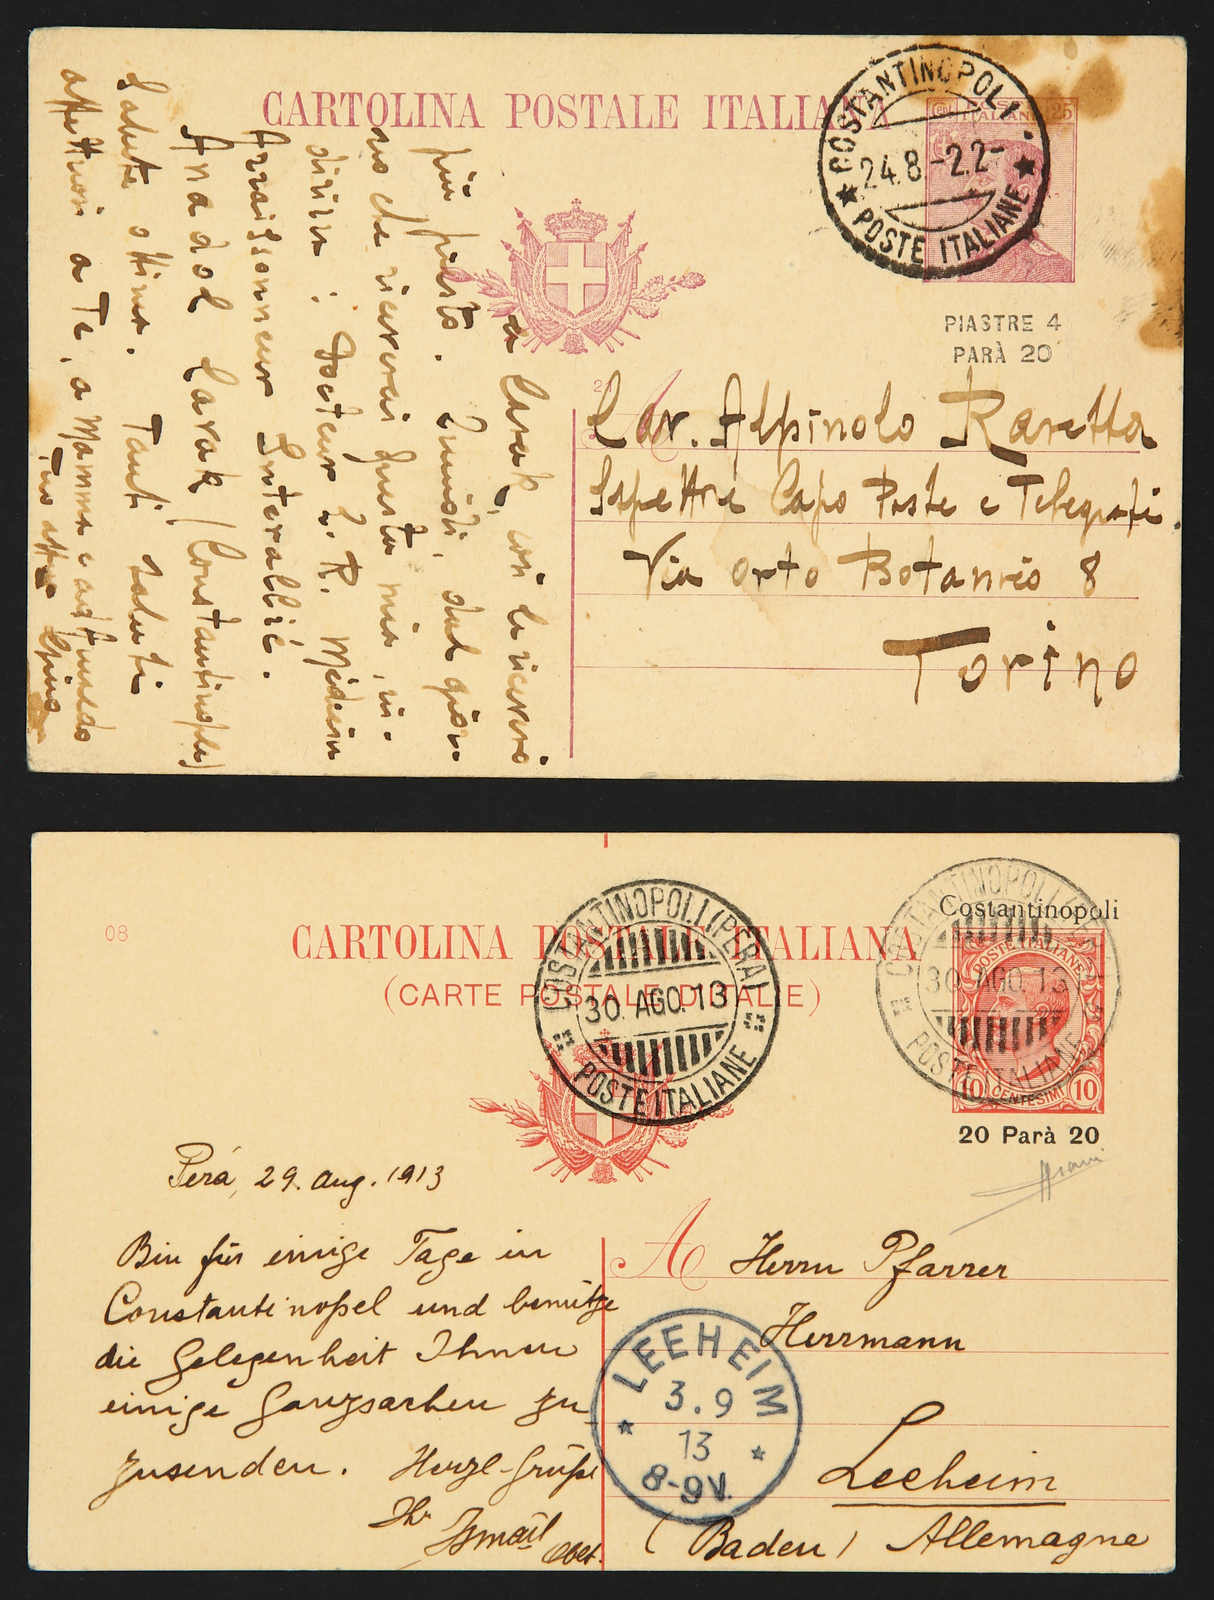 CARTOLINA POSTALE ITALIANA
COSTANTINOPOLI
24.8.-22-
POSTE ITALIANE
25
PIASTRE 4
PARÀ 20
Cav. Alpinolo Raretta
Capo Poste e Telegrafi.
Via Orto Botanico 8
Torino
a Cavak, così le riceverò
più presto. Quindi, dal gior-
no che riceverai questa mia, in-
dirizza: Docteur L. R. Médecin
Arraisonneur Interallié.
Anadol Cavak (Constantinople)
Salute ottima. Tanti saluti
affettuosi a Te, a Mamma e
Tuo
08
CARTOLINA POSTALE ITALIANA
(CARTE POSTALE D'ITALIE)
COSTANTINOPOLI (PERA)
30. AGO. 13
POSTE ITALIANE
COSTANTINOPOLI (PERA)
30. AGO. 13
POSTE ITALIANE
Costantinopoli
POSTE ITALIANE
10 CENTESIMI 10
20 Parà 20
Pera, 29. Aug. 1913
Bin für einige Tage in
Constantinopel und benütze
die Gelegenheit Ihnen
einige Ganzsachen zu-
zusenden. Herzl. Grüße
Ihr Ismail
Herrn Pfarrer
Herrmann
Leeheim
(Baden) Allemagne
LEEHEIM
3.9
13
8-9V.